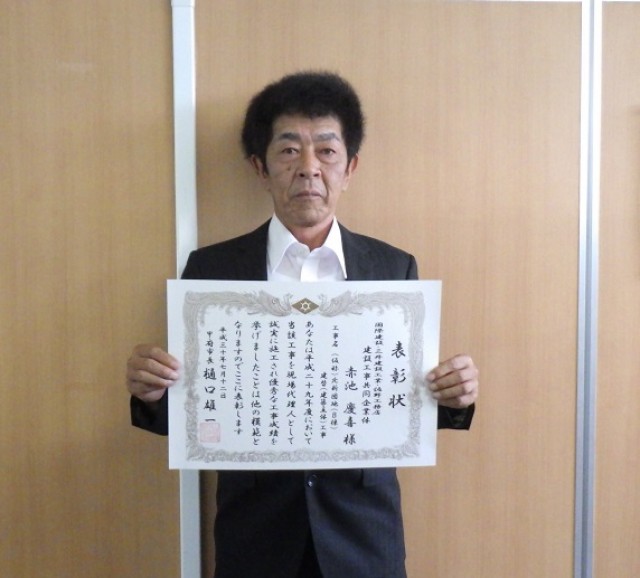 表彰状
国際建設・三井建設工業・佐野工務店
建設工事共同企業体
赤池慶喜様
工事名(仮称)北新団地(B棟)
建替(建築主体)工事
あなたは平成二十九年度において
当該工事を現場代理人として
誠実に施工され優秀な工事成績を
挙げましたことは他の模範と
なりますのでここに表彰します
平成三十年七月十一日
甲府市長 樋口雄一